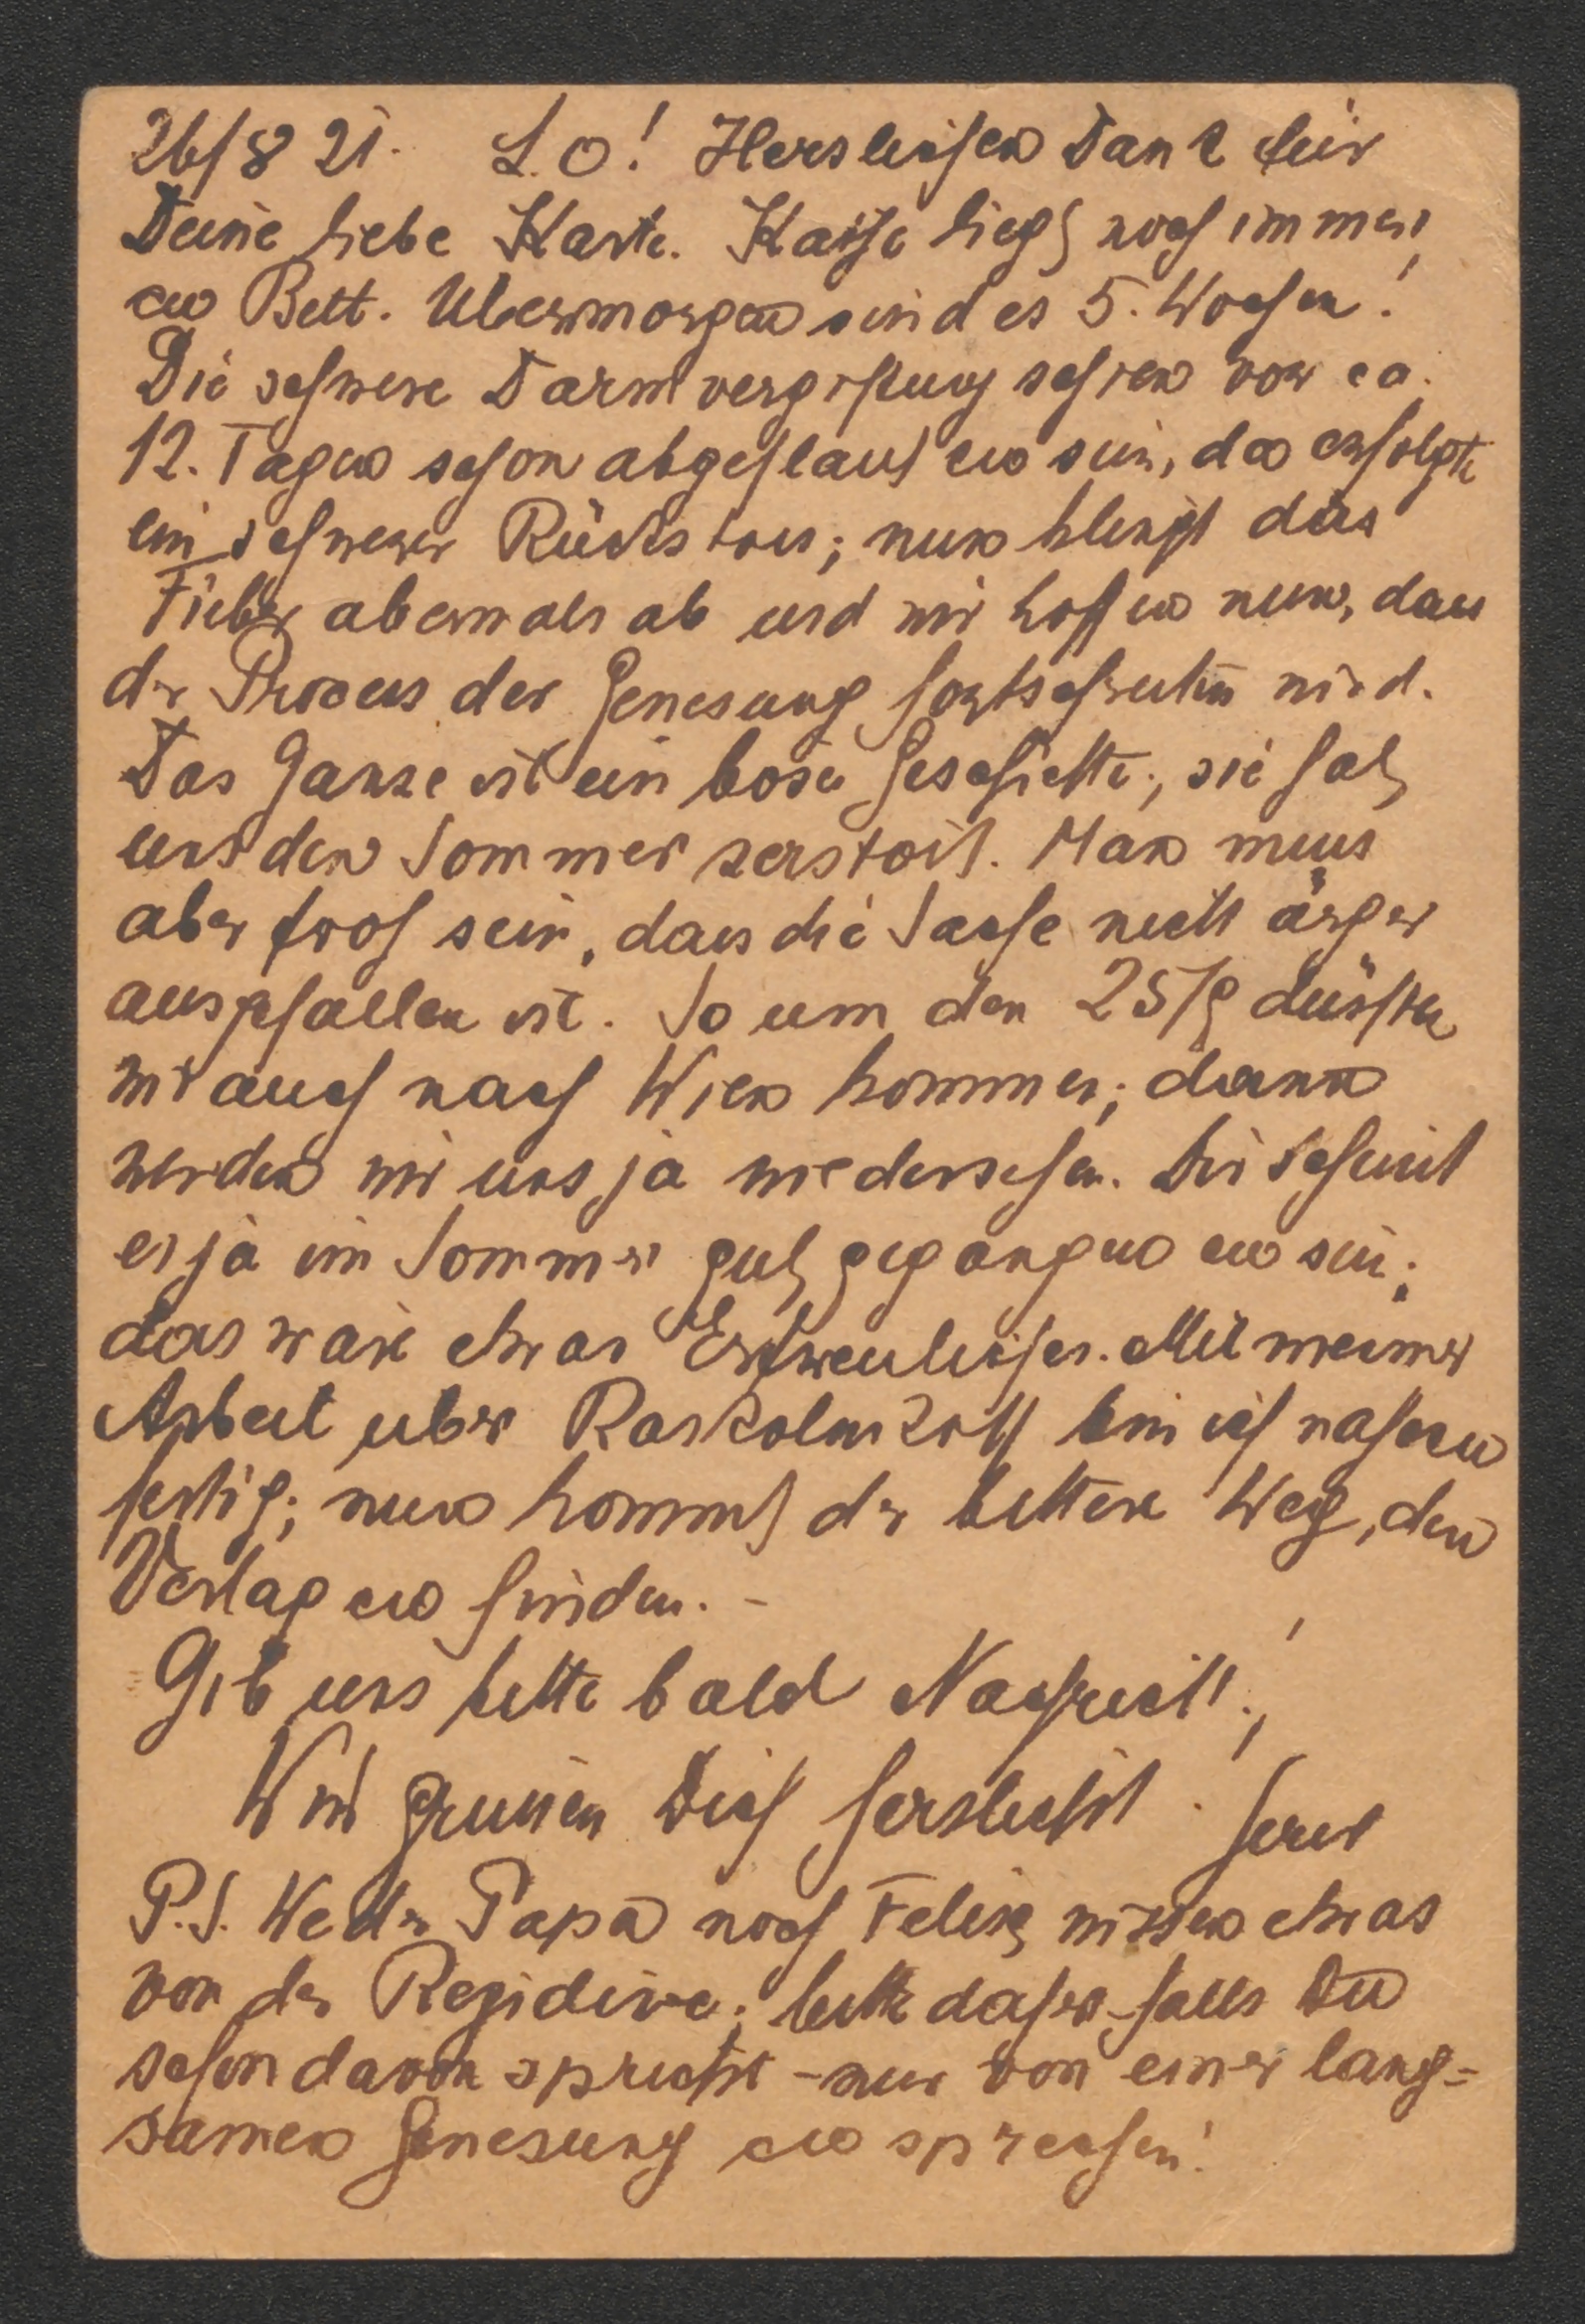 26/8 21. L.O! Herzlichen Dank für
Deine liebe Karte. Käthe liegt noch immer
zu Bett. Übermorgen sind es 5. Wochen!
Die schwere Darmvergiftung schien vor ca.
12. Tagen schon abgeflaut zu sein, da erfolgte
ein schwerer Rückstoss; nun klingt das
Fieber abermals ab und wir hoffen nun, dass
der Process der Genesung fortschreiten wird.
Das Ganze ist ein böse Geschichte; sie hat
uns den Sommer zerstört. Man muss
aber froh sein, dass die Sache nicht ärger
ausgefallen ist. So um den 25/9 dürften
wir auch nach Wien kommen; dann
werden wir uns ja wiedersehen. Dir scheint
es ja im Sommer gut gegangen zu sein;
das wäre etwas Erfreuliches. Mit meiner
Arbeit über Raskolnikoff bin ich nahezu
fertig; nun kommt der bittere Weg, den
Verlag zu finden. -
Gib uns bitte bald Nachricht!,
Wir grüssen Dich herzlichst.
P.S. Weder Papa noch Felix wissen etwas
von der Rezidive; bitte daher - falls Du
schon davon sprichst - nur von einer lang-
samen Genesung zu sprechen!